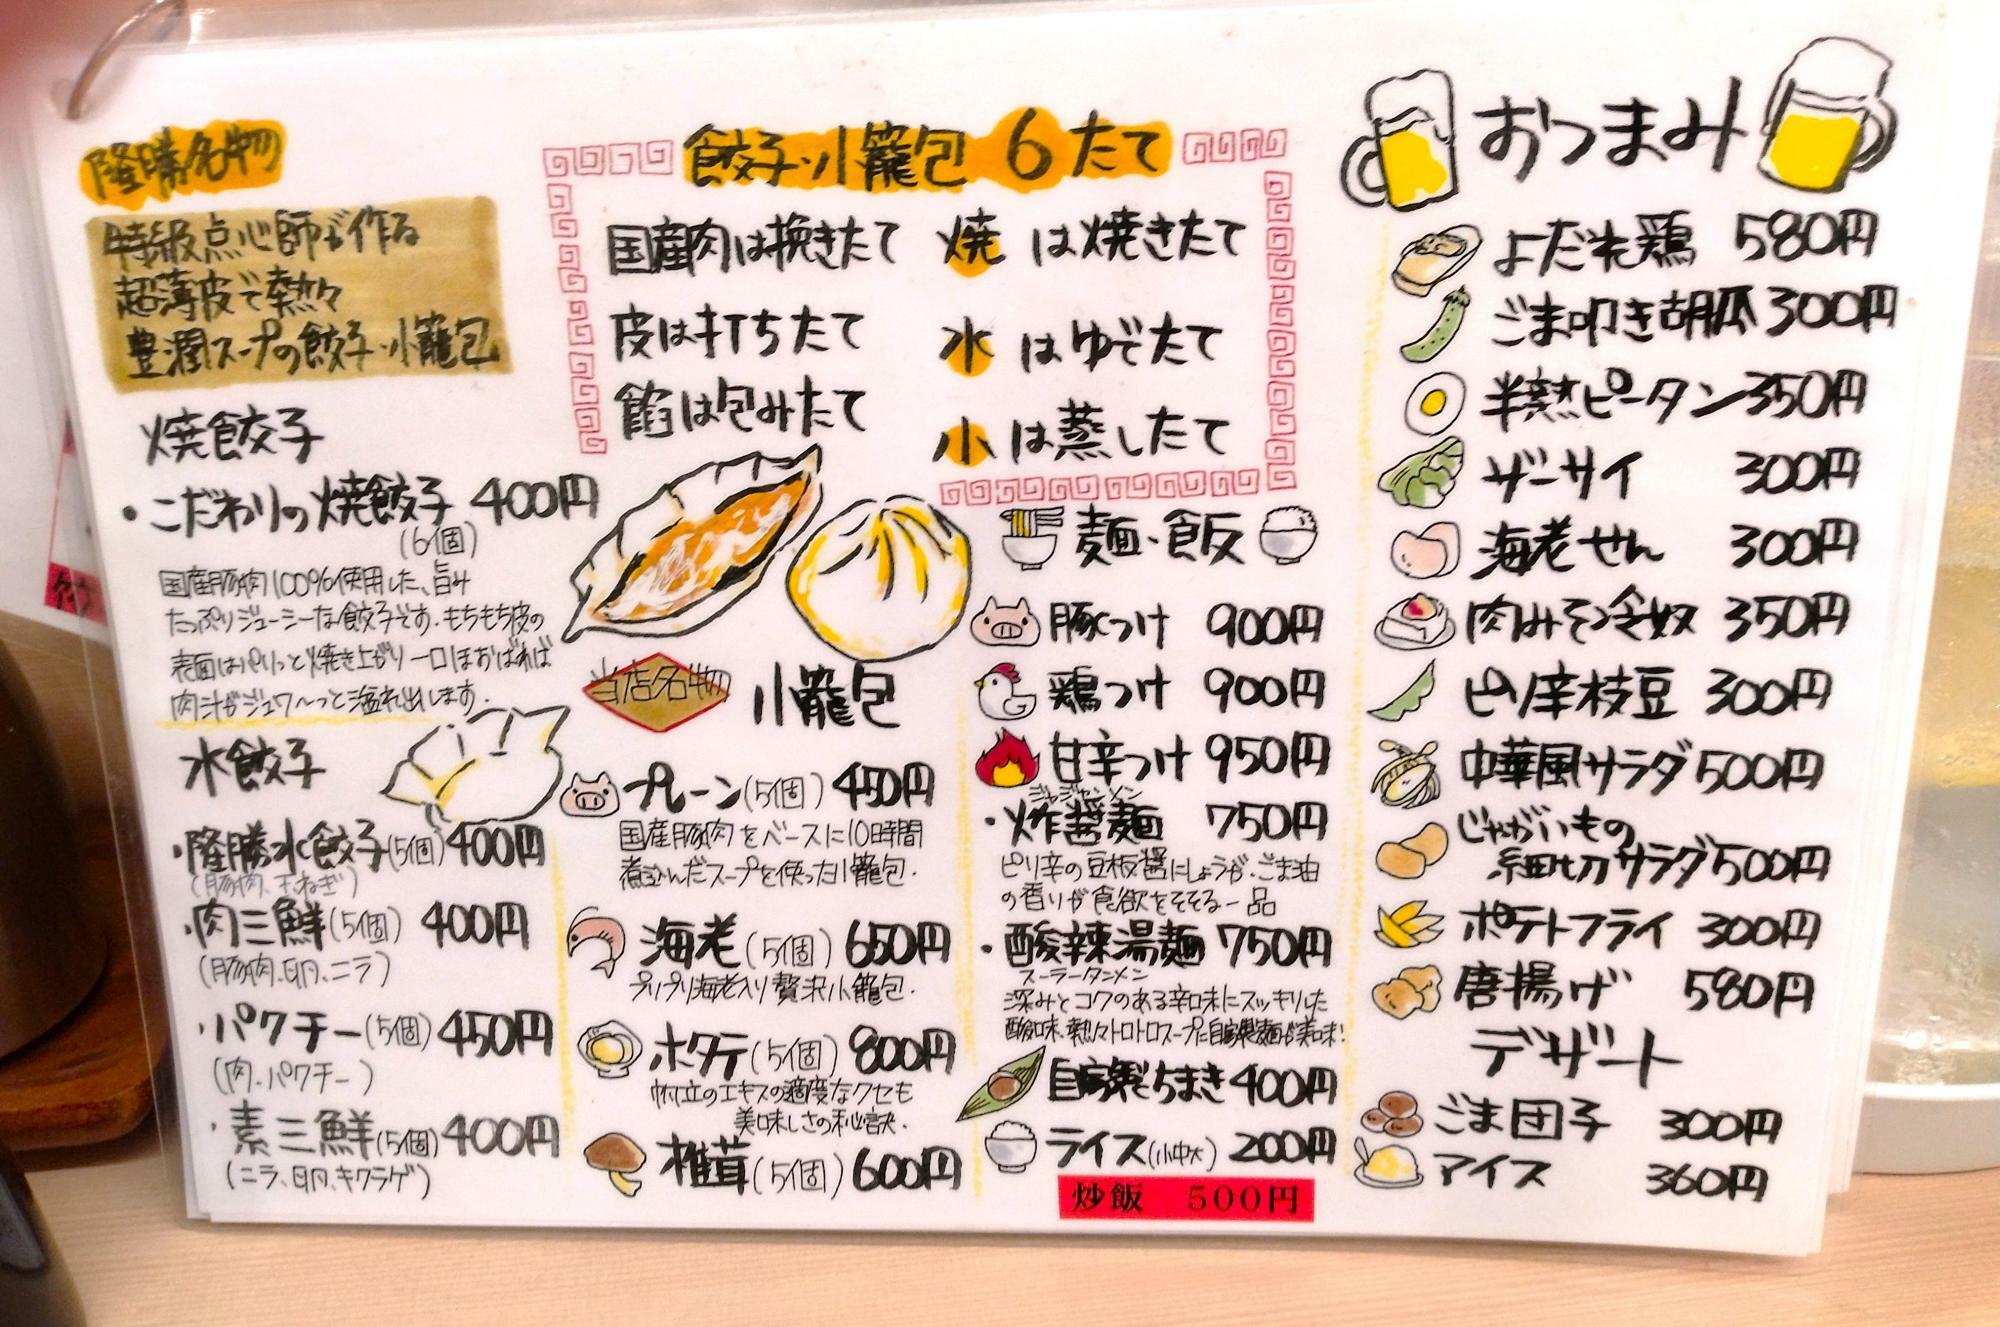 隆勝名物
特級点心師が作る
超薄皮で熱々
豊潤スープの餃子・小籠包
焼餃子
・こだわりの焼餃子 400円
(6個)
国産豚肉100%使用した、旨み
たっぷりジューシーな餃子です。もちもち皮の
表面はパリっと焼き上がり一口ほおばれば
肉汁がジュワ〜っと溢れ出します。
水餃子
・隆勝水餃子(5個) 400円
(豚肉、玉ねぎ)
・肉三鮮(5個) 400円
(豚肉、卵、ニラ)
・パクチー(5個) 450円
(肉・パクチー)
・素三鮮(5個) 400円
(ニラ、卵、キクラゲ)
餃子・小籠包 6たて
国産肉は挽きたて
皮は打ちたて
餡は包みたて
焼は焼きたて
水はゆでたて
小は蒸したて
当店名物 小籠包
プレーン(5個) 450円
国産豚肉をベースに10時間
煮込んだスープを使った小籠包.
海老(5個) 650円
プリプリ海老入り贅沢小籠包.
ホタテ(5個) 800円
帆立のエキスの適度なクセも
美味しさの秘訣.
椎茸(5個) 600円
麺・飯
豚つけ 900円
鶏つけ 900円
甘辛つけ 950円
ジャジャンメン
・炸醤麺 750円
ピリ辛の豆板醤にしょうが・ごま油
の香りが食欲をそそる一品
・酸辣湯麺 750円
スーラータンメン
深みとコクのある辛味にスッキリした
酸味、熱々トロトロスープに自家製麺が美味!
自家製ちまき 400円
ライス(小中大) 200円
炒飯 500円
おつまみ
よだれ鶏 580円
ごま叩き胡瓜 300円
半熟ピータン 350円
ザーサイ 300円
海老せん 300円
肉みそ冷奴 350円
ピリ辛枝豆 300円
中華風サラダ 500円
じゃがいもの
細切サラダ 500円
ポテトフライ 300円
唐揚げ 580円
デザート
ごま団子 300円
アイス 360円